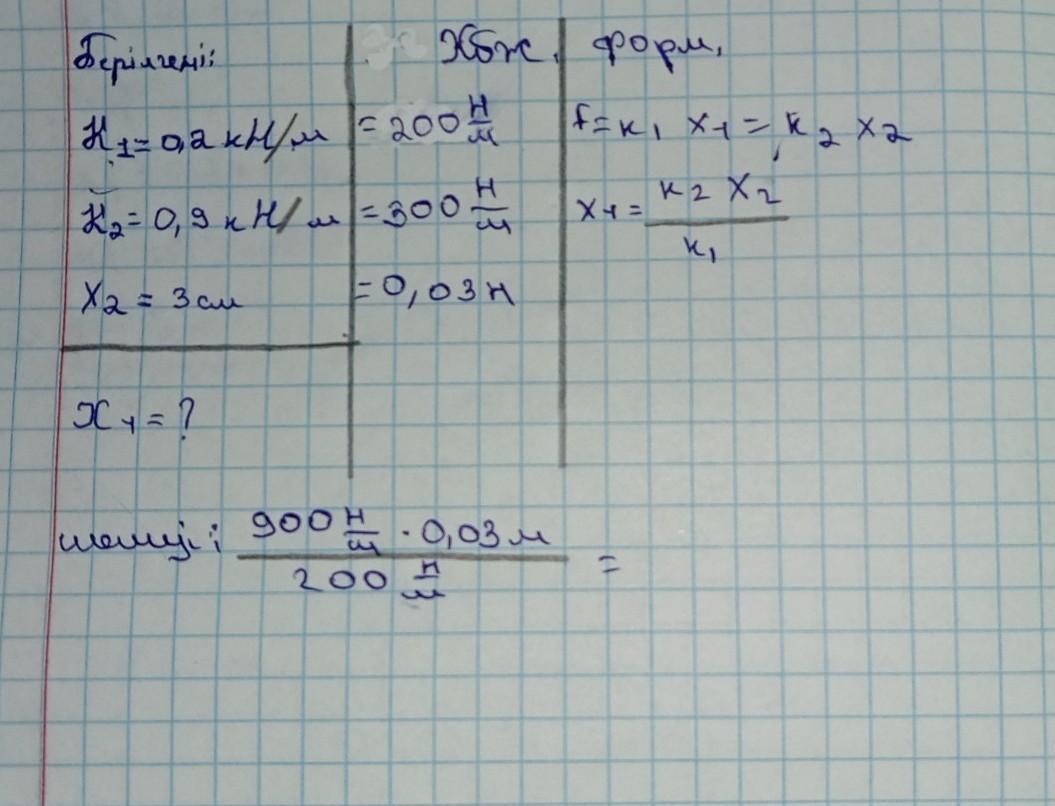 Берілгені: ХБЖ. форм.
К₁=0,2 кН/м =200 Н/м F=к₁ x₁=к₂ x₂
К₂=0,9 кН/м =300 Н/м x₁= к₂ x₂ / к₁
x₂ = 3 см =0,03 Н
x₁=?
шешуі: 900 Н/м · 0,03 м / 200 Н/м =